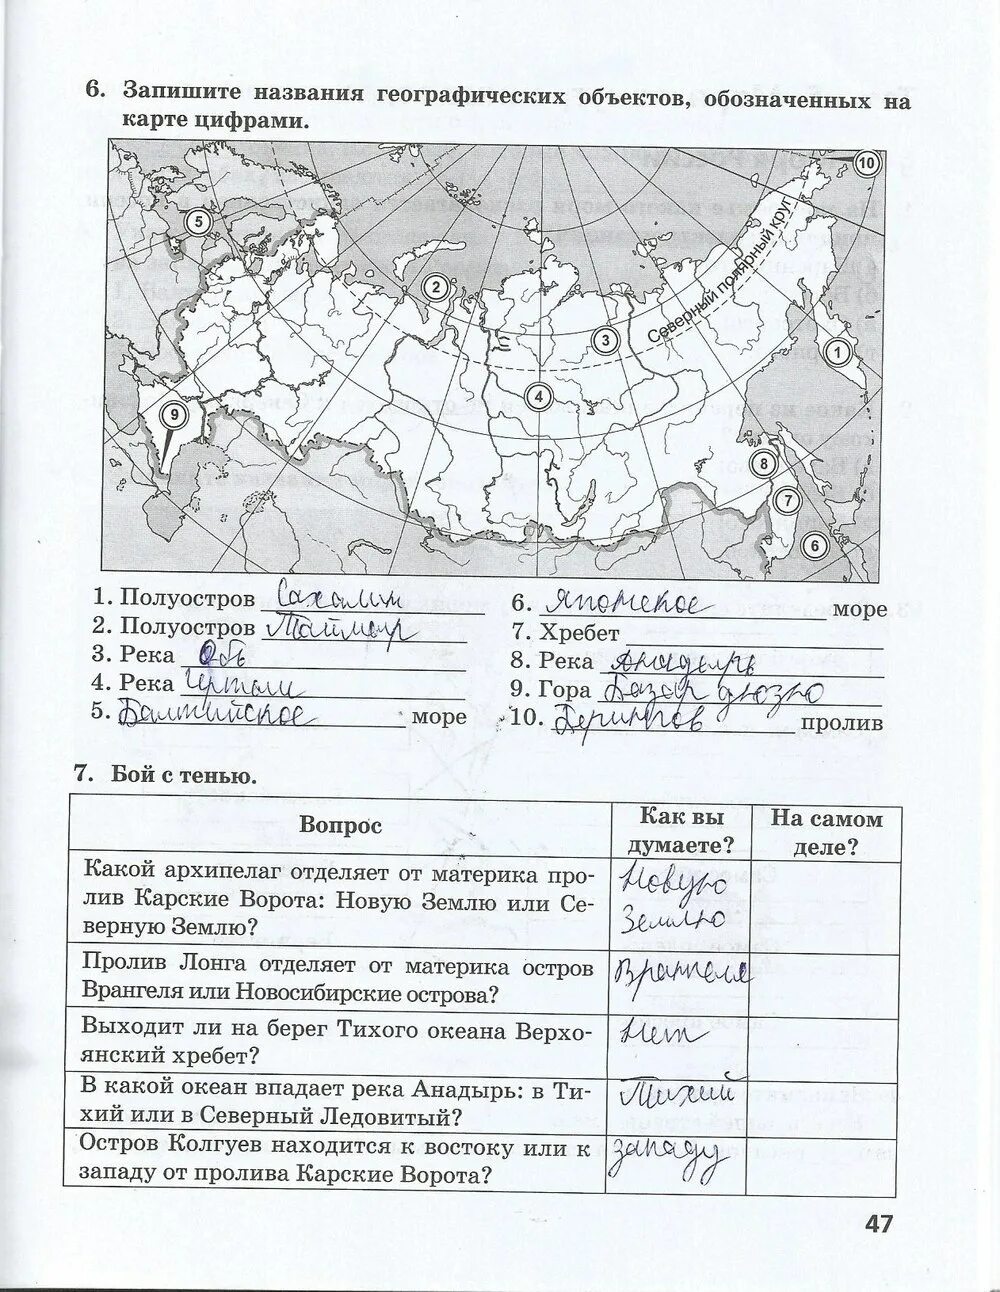 6. Запишите названия географических объектов, обозначенных на
карте цифрами.
10
5
Северный полярный круг
2
3
1
4
9
8
7
6
1. Полуостров Сахалин
2. Полуостров Таймыр
3. Река Обь
4. Река
5. Балтийское море
6. Японское море
7. Хребет
8. Река Анадырь
9. Гора Базардюзю
10. Берингов пролив
7. Бой с тенью.
Вопрос
Как вы
думаете?
На самом
деле?
Какой архипелаг отделяет от материка про-
лив Карские Ворота: Новую Землю или Се-
верную Землю?
Новую
Землю
Пролив Лонга отделяет от материка остров
Врангеля или Новосибирские острова?
Врангеля
Выходит ли на берег Тихого океана Верхо-
янский хребет?
Нет
В какой океан впадает река Анадырь: в Ти-
хий или в Северный Ледовитый?
Тихий
Остров Колгуев находится к востоку или к
западу от пролива Карские Ворота?
западу
47